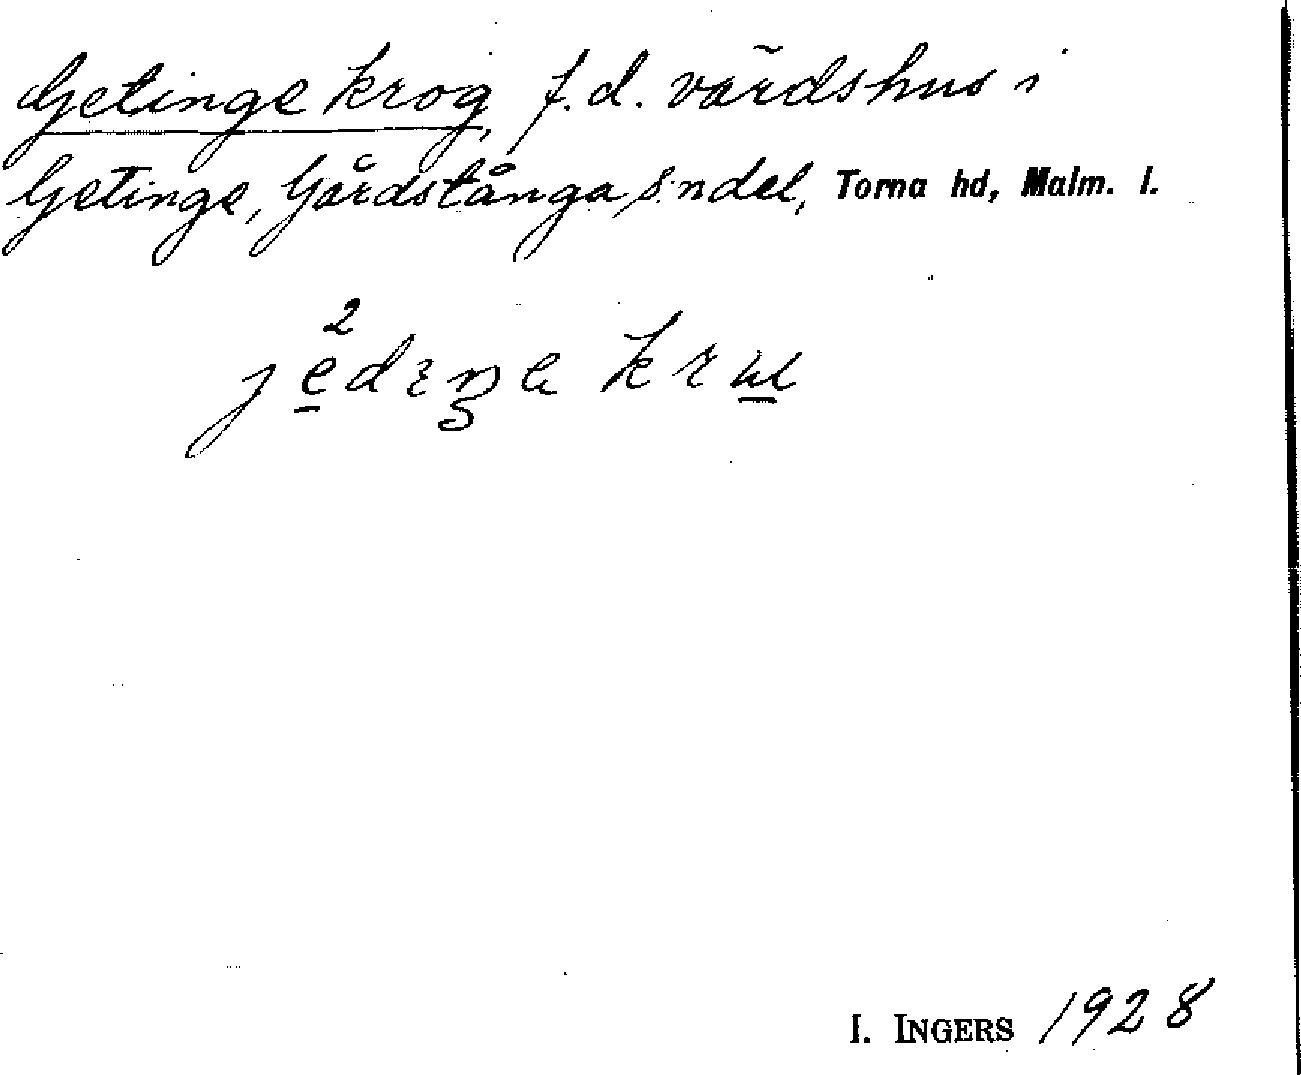 Getinge krog, f.d. värdshus i
Getinge, Gårdstånga s:ndel, Torna hd, Malm. l.
I. INGERS 1928